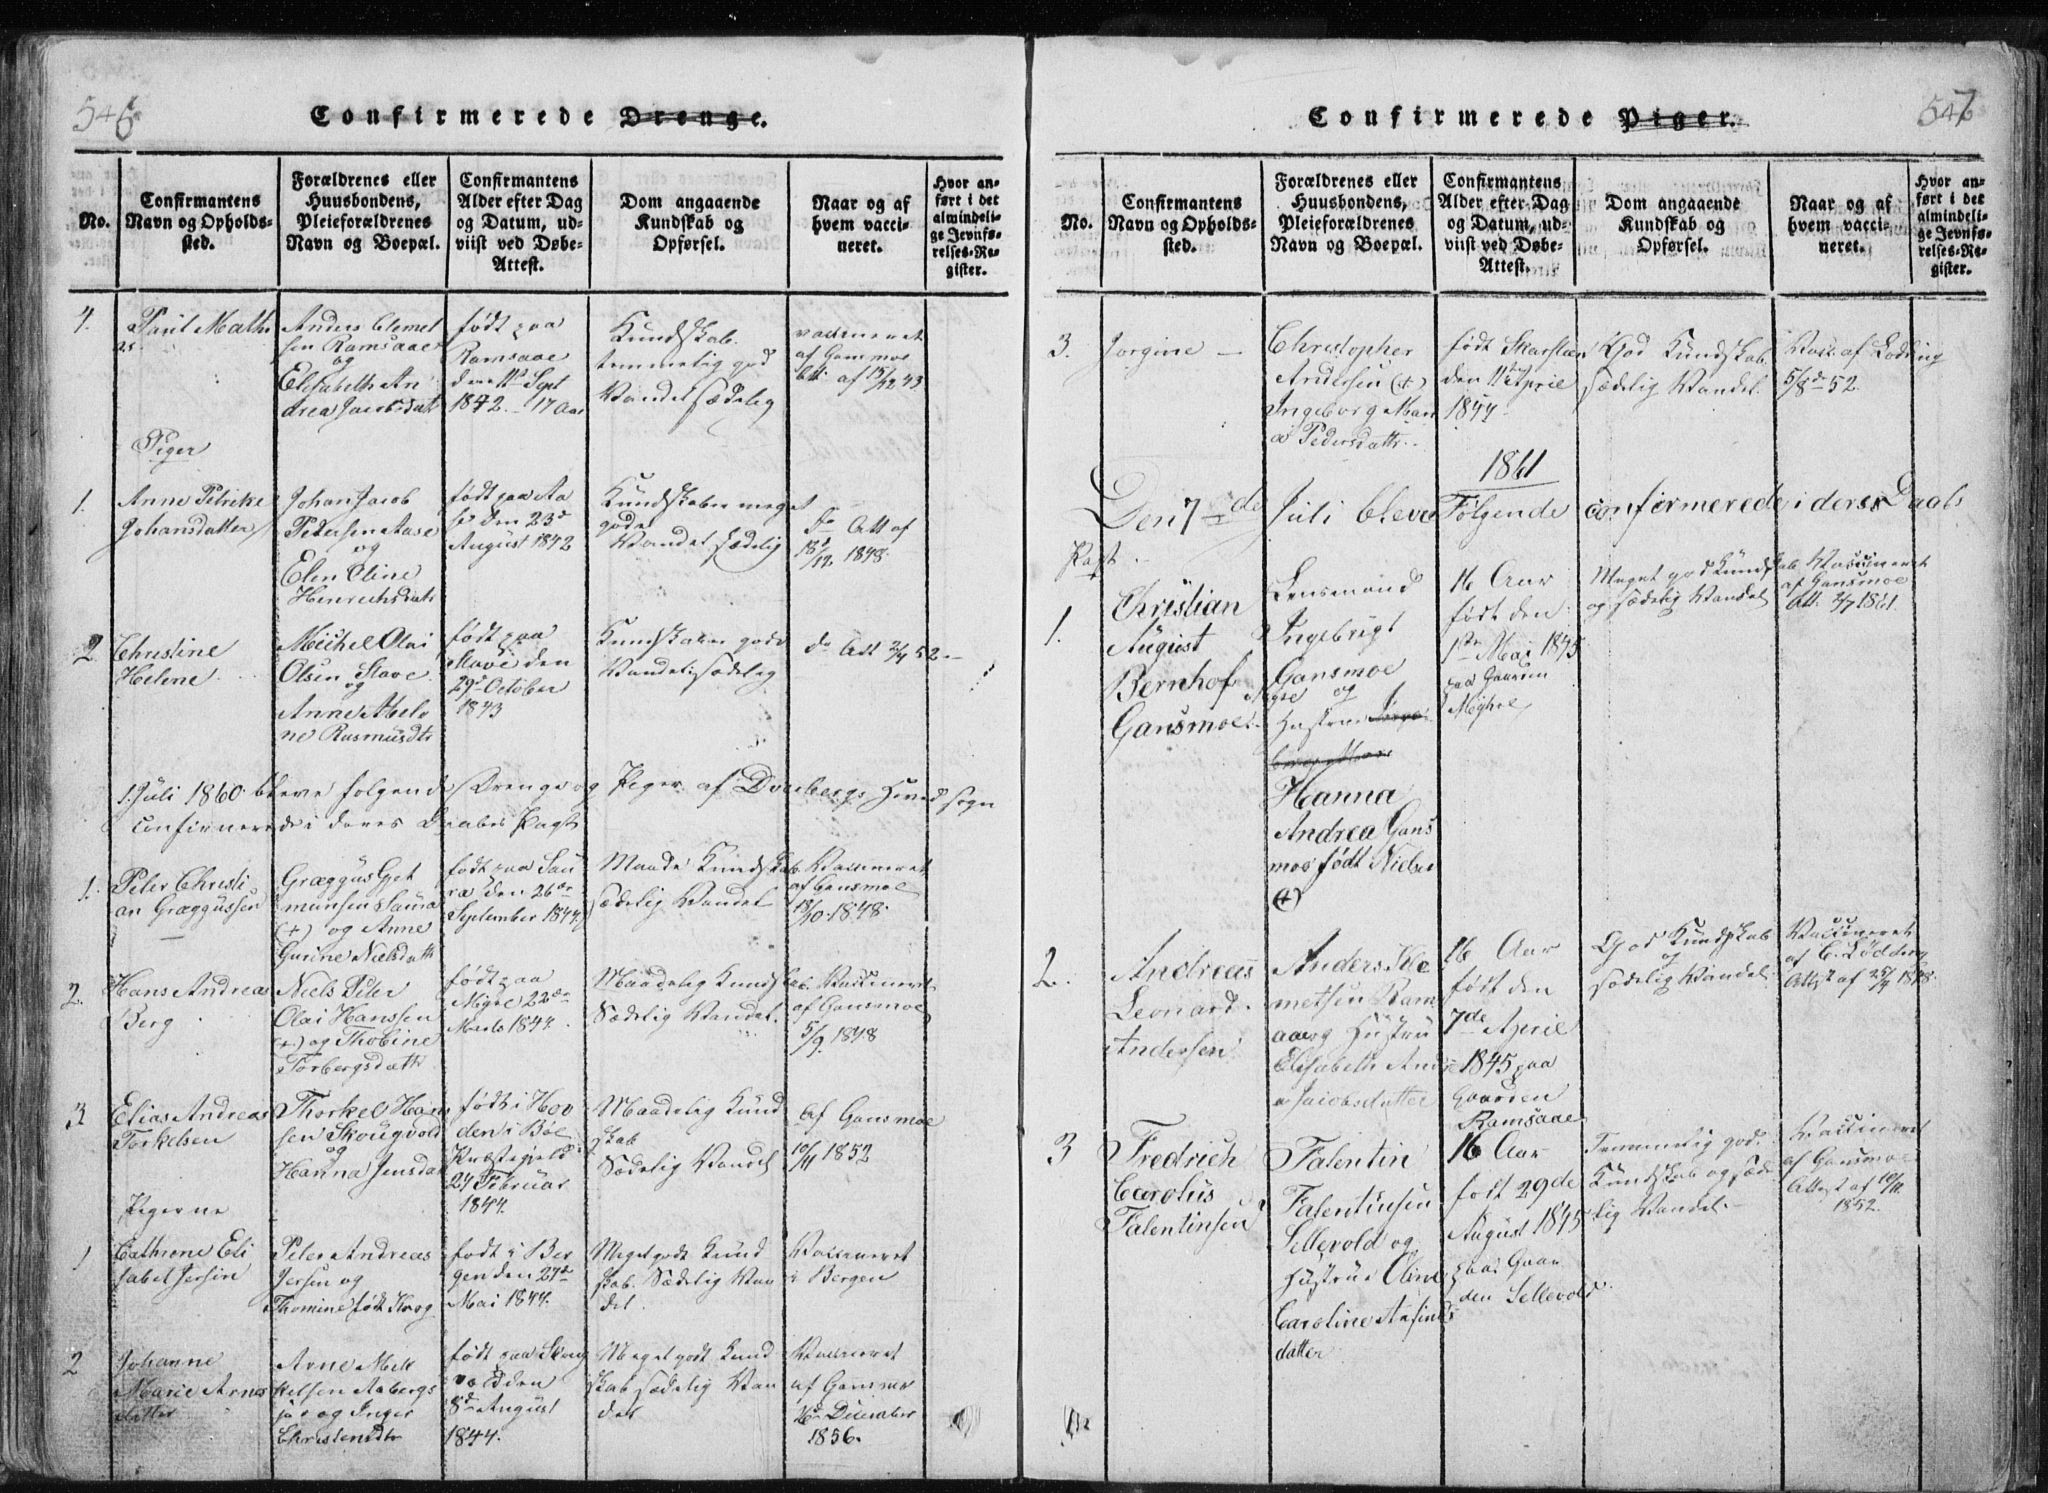 546
Confirmerede Drenge.
No.
Confirmantens
Navn og Opholds-
sted.
Forældrenes eller
Huusbondens,
Pleieforældrenes
Navn og Boepæl.
Confirmantens
Alder efter Dag
og Datum, ud-
viist ved Døbe-
Attest.
Dom angaaende
Kundskab og
Opførsel.
Naar og af
hvem vacci-
neret.
Hvor an-
ført i det
almindeli-
ge Jevnfø-
relses-Re-
gister.
4.
Paul Math
Anders Clemet
sen Ramsaae
og
Elisabeth An
drea Jacobsdatt
født paa
Ramsaae
den 11te Sept
1842. – 17 Aar
Kundskab
temmelig god
Vandel sædelig
vaccineret
af Gansmoe
Att. af 15/12 43
Piger
1.
Anne Petrike
Johansdatter
Johan Jacob
Petersen Aase
og
Elen Oline
Henrichsdatr
født paa Aa
se den 23de
August 1842
Kundskaber meget
gode
Vandel sædelig
do Att af
18/12 1848.
2
Christine
Helene
Michel Olai
Olsen Stave
og
Anne Malo
ne Rasmusdtr
født paa
Stave den
29de October
1843
Kundskaber gode
Vandel sædelig
do Att 2/4 52.
1 Juli 1860 bleve folgende Drenge og Piger af Dverbergs Hovedsogn
confirmerede i deres Daabes Pagt
1.
Peter Christi
an Græggussen
Græggus Gjet
mundsen Saura
(+) og Anne
Gurine Nielsdatt
født paa Sau
ra den 26de
September 1844
Maadel Kundskab
Sædelig Vandel
Vaccineret
af Gansmoe
18/10 1848.
2.
Hans Andreas
Berg
Niels Peter
Olai Hanssen
(+) og Thobine
Torbergsdattr
født paa
Myre 22de
Marts 1844.
Maadelig Kundskab.
Sædelig Vandel.
Vaccineret
af Gansmoe
5/9 1848
3
Elias Andreas
Torkelsen
Thorkel Han
sen Skougvold
og
Hanna Jensdat
født i Hov
den i Bøe
Præstegjeld
24 Februar
1844.
Maadelig Kund
skab
Sædelig Vandel
Af Gansmoe
10/11 1852
Pigerne
1
Cathrine Eli
sabet Jersin
Peter Andreas
Jersin og
Thomine født Krog
født i Ber
gen den 27de
Mai 1844.
Meget godt Kund
skab. Sædelig Van
del.
Vaccineret
i Bergen
2
Johanne
Marie Arns
datter
Arne Mik
kelsen Aabergs
jor og Inger
Christensdtr
født paa Skoug
vold den
8de August
1844.
Meget godt Kund
skab sædelig Van
del
Vaccineret
af Gansmoe
16de December
1856.
547
Confirmerede Piger.
No.
Confirmantens
Navn og Opholds-
sted.
Forældrenes eller
Huusbondens,
Pleieforældrenes
Navn og Boepæl.
Confirmantens
Alder efter Dag
og Datum, ud-
viist ved Døbe-
Attest.
Dom angaaende
Kundskab og
Opførsel.
Naar og af
hvem vacci-
neret.
Hvor an-
ført i det
almindeli-
ge Jevnfø-
relses-Re-
gister.
3.
Jorgine –
Christopher
Andersen (+)
Ingeborg Mari
a Pedersdattr.
født Skarsten
den 11te April
1844
God Kundskab
sædelig Vandel.
Vacc. af Lodding
5/8de 52.
1861
Den 7de Juli bleve Følgende confirmerede i deres Daabs
Pagt.
1.
Christian
August
Bernhof
Gansmoe.
Lensmand
Ingebrigt
Gansmoe
Myre og
Hustru
Hanna
Andrea Gans
moe født Nielsen
(+)
16 Aar
født den
1ste Mai 1845
paa Gaarden
Myhre
Meget god Kundskab
og sædelig Vandel
Vaccineret
af Gansmoe
Att. 2/7 1861.
2.
Andreas
Leonard
Andersen
Anders Kle
metsen Ram
aa og Hustru
Elisabeth Andre
a Jacobsdatter
16 Aar
født den
7de April
1845 paa
Gaarden
Ramsaae
God Kundskab
og
sædelig Vandel
Vaccineret
af C. Lödding
Attest af 25/4 1848.
3
Fredrich
Carolus
Falentinsen
Falentin
Falentinsen
Sellevold og
Hustrue Oline
Caroline Arfinds
datter
16 Aar
født 29de
August 1845
paa Gaar
den Sellevold
Temmelig god
Kundskab og sæde
lig Vandel.
Vaccineret
af Gansmoe
Attest af 10/11
1852.